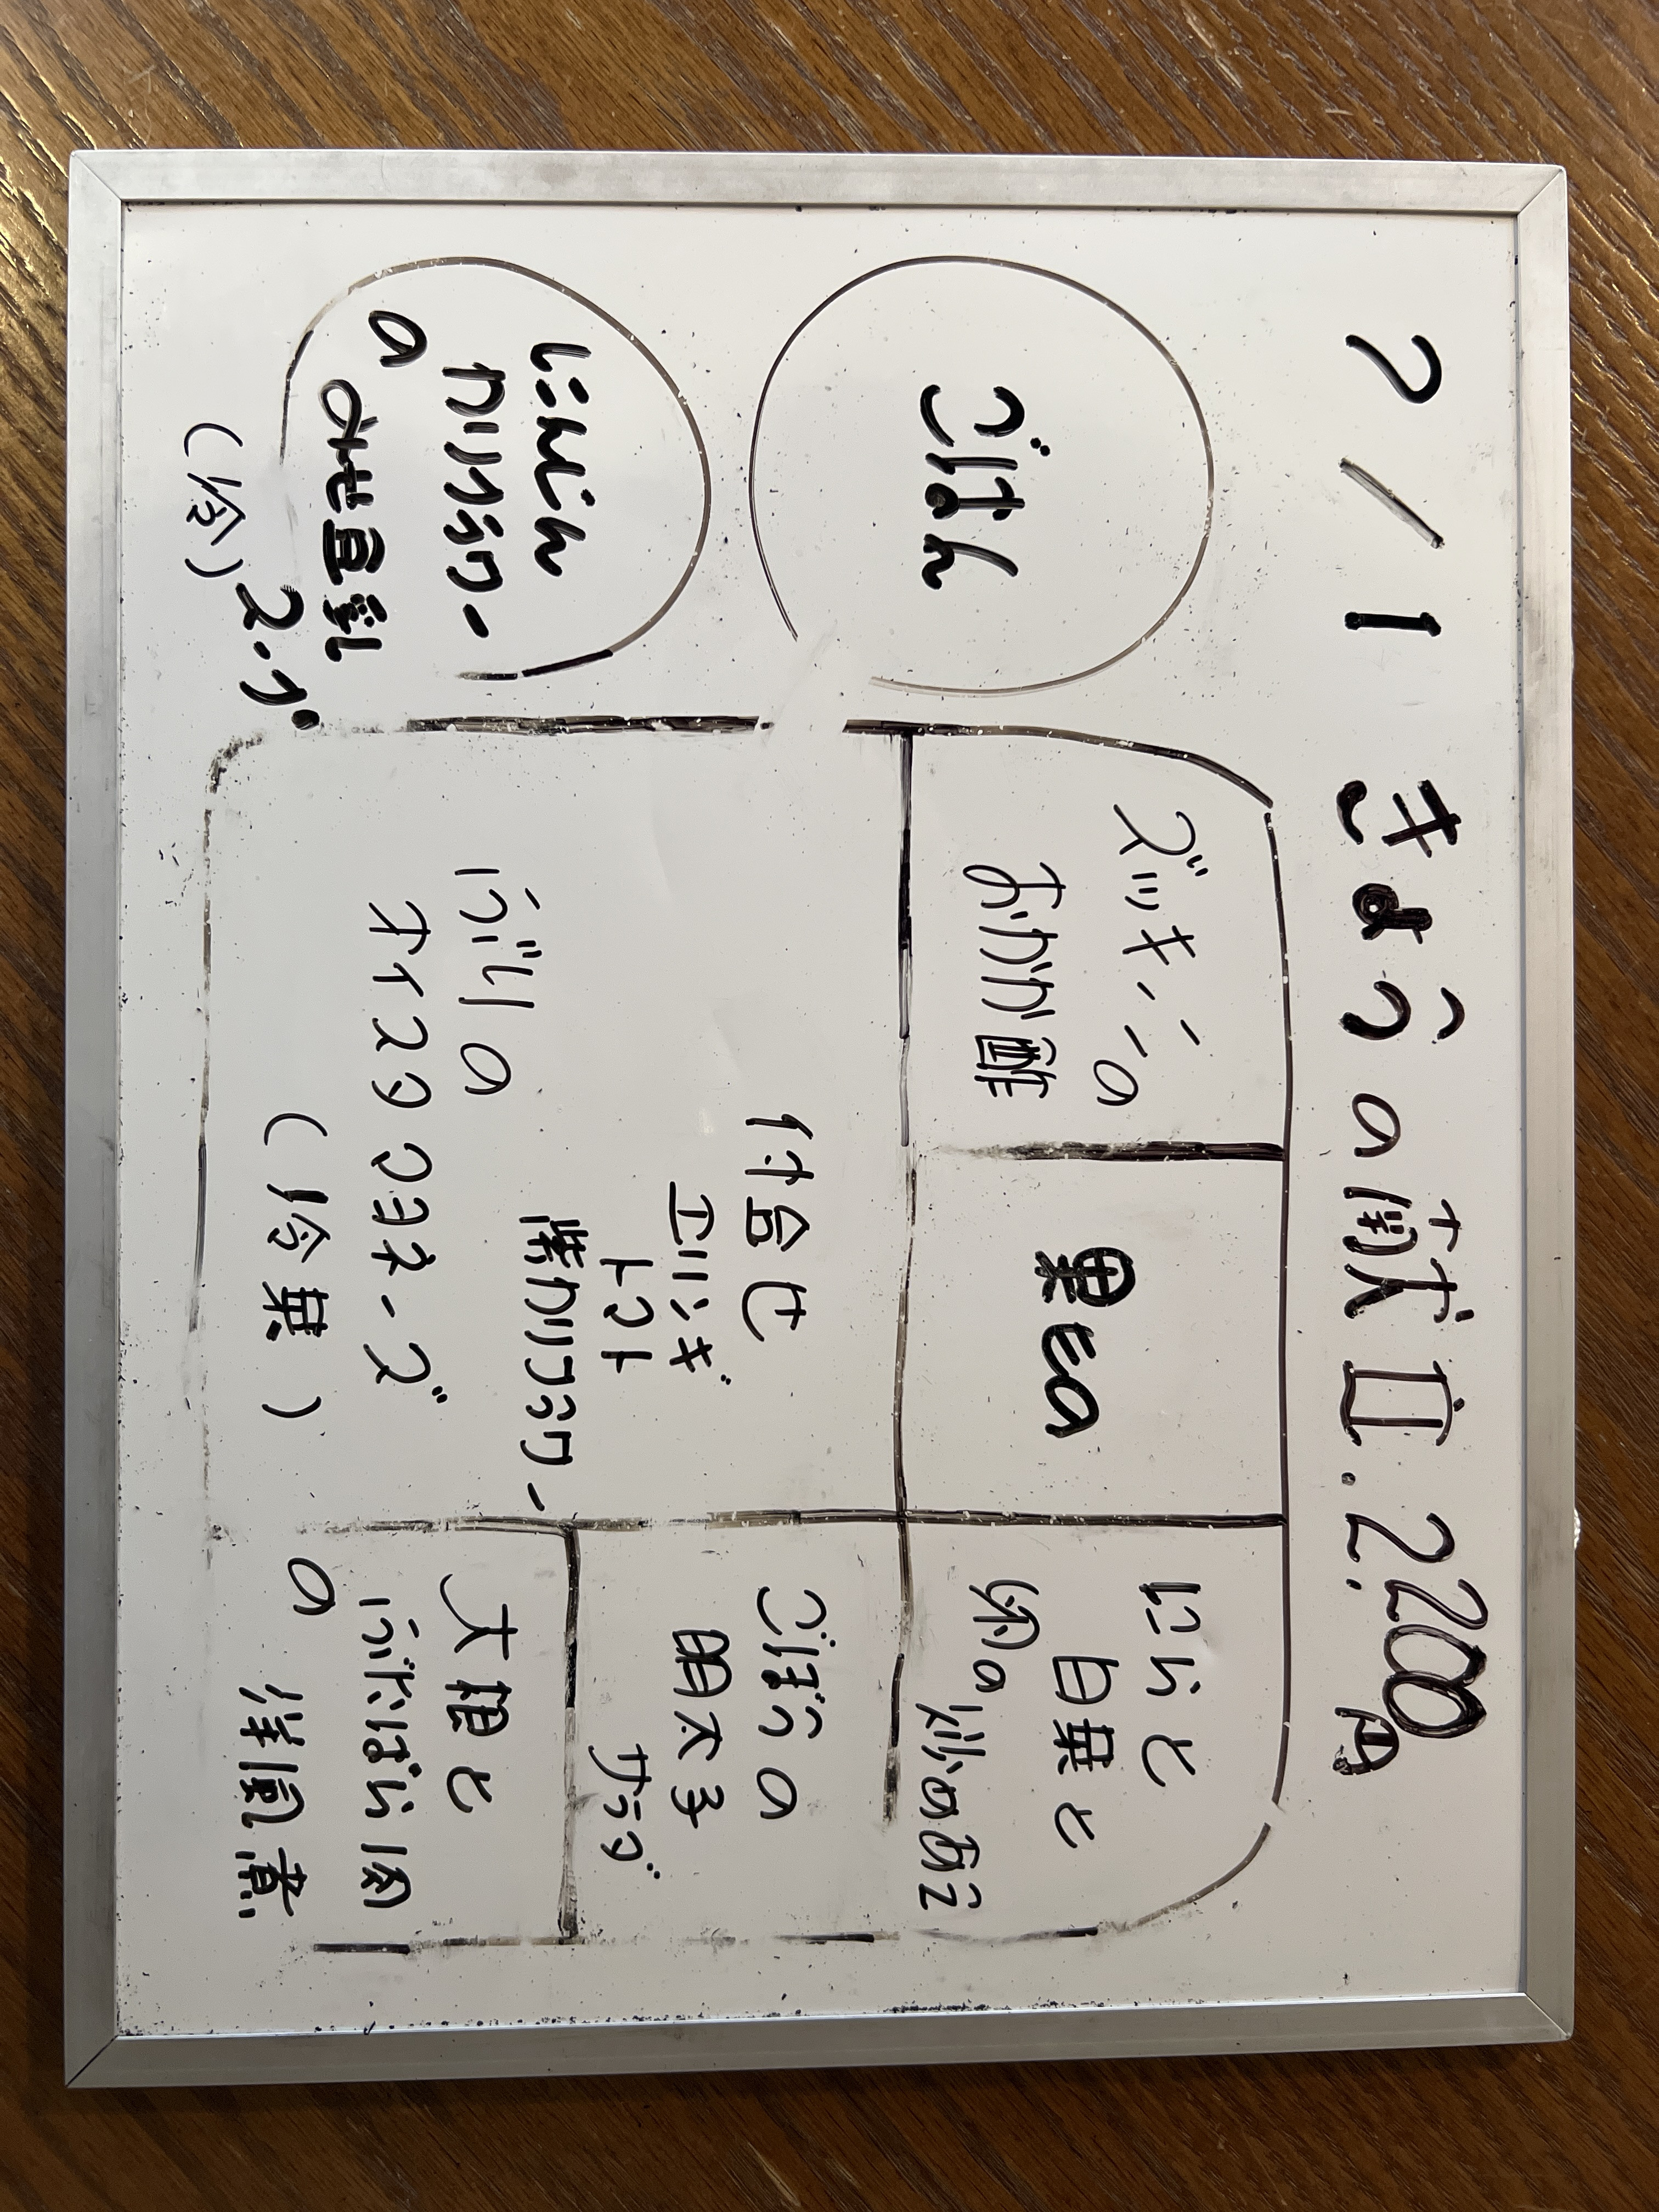 7/1 きょうの献立.2.200円
ごはん
にんじん
カリフラワー
の
みそ豆乳
スープ
(冷)
ズッキーニの
おかか酢
果もの
にらと
白菜と
卵の炒めあえ
付合せ
エリンギ
トマト
紫カリフラワー
ぶりの
オイスタマヨネーズ
(冷菜)
ごぼうの
明太子
サラダ
大根と
ぶたばら肉
の 洋風煮